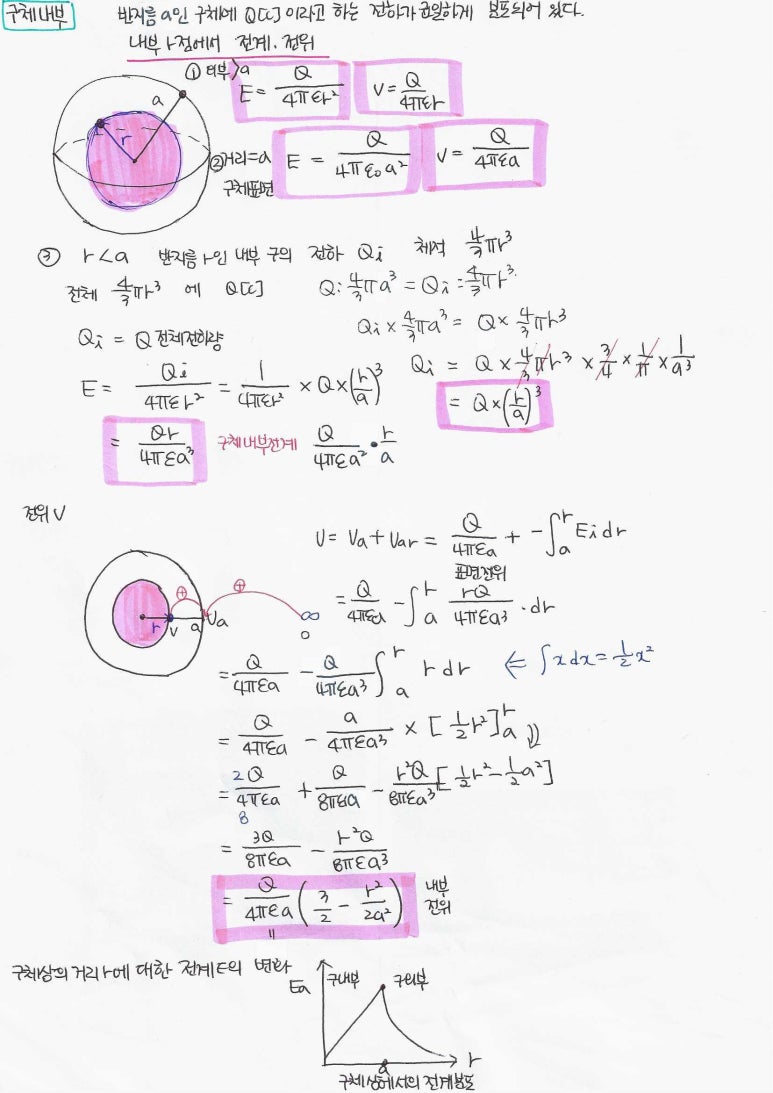 구체내부 반지름 a인 구체에 Q[c]이라고 하는 전하가 균일하게 분포되어 있다.
내부 r점에서 전계. 전위
① 외부>a E = Q/4πεr² V = Q/4πεr
② 거리=a 구체표면 E = Q/4πε₀a² V = Q/4πεa
a
r
③ r<a 반지름 r인 내부 구의 전하 Qi 체적 4/3πr³
전체 4/3πr³ 에 Q[c] Q : 4/3πa³ = Qi : 4/3πr³
Qi × 4/3πa³ = Q × 4/3πr³
Qi = Q 전체전하량
Qi = Q × 4/3πr³ × 3/4 × 1/π × 1/a³
E = Qi/4πεr² = 1/4πεr² × Q × (r/a)³
= Q × (r/a)³
= Qr/4πεa³ 구체내부전계 Q/4πεa² · r/a
전위 V
V = Va + Var = Q/4πεa + - ∫ₐʳ Ei dr
표면전위
= Q/4πεa - ∫ₐʳ rQ/4πεa³ · dr
r V a Va ∞
0
= Q/4πεa - Q/4πεa³ ∫ₐʳ r dr ⇐ ∫xdx = 1/2x²
= Q/4πεa - a/4πεa³ × [1/2r²]ₐʳ
= 2Q/4πεa + Q/8πεa - r²Q/8πεa³ [1/2r² - 1/2a²]
8
= 3Q/8πεa - r²Q/8πεa³
= Q/4πεa (3/2 - r²/2a²) 내부 전위
구체상의 거리 r에 대한 전계E의 변화
Ea 구내부 구외부
a r
구체상에서의 전계분포